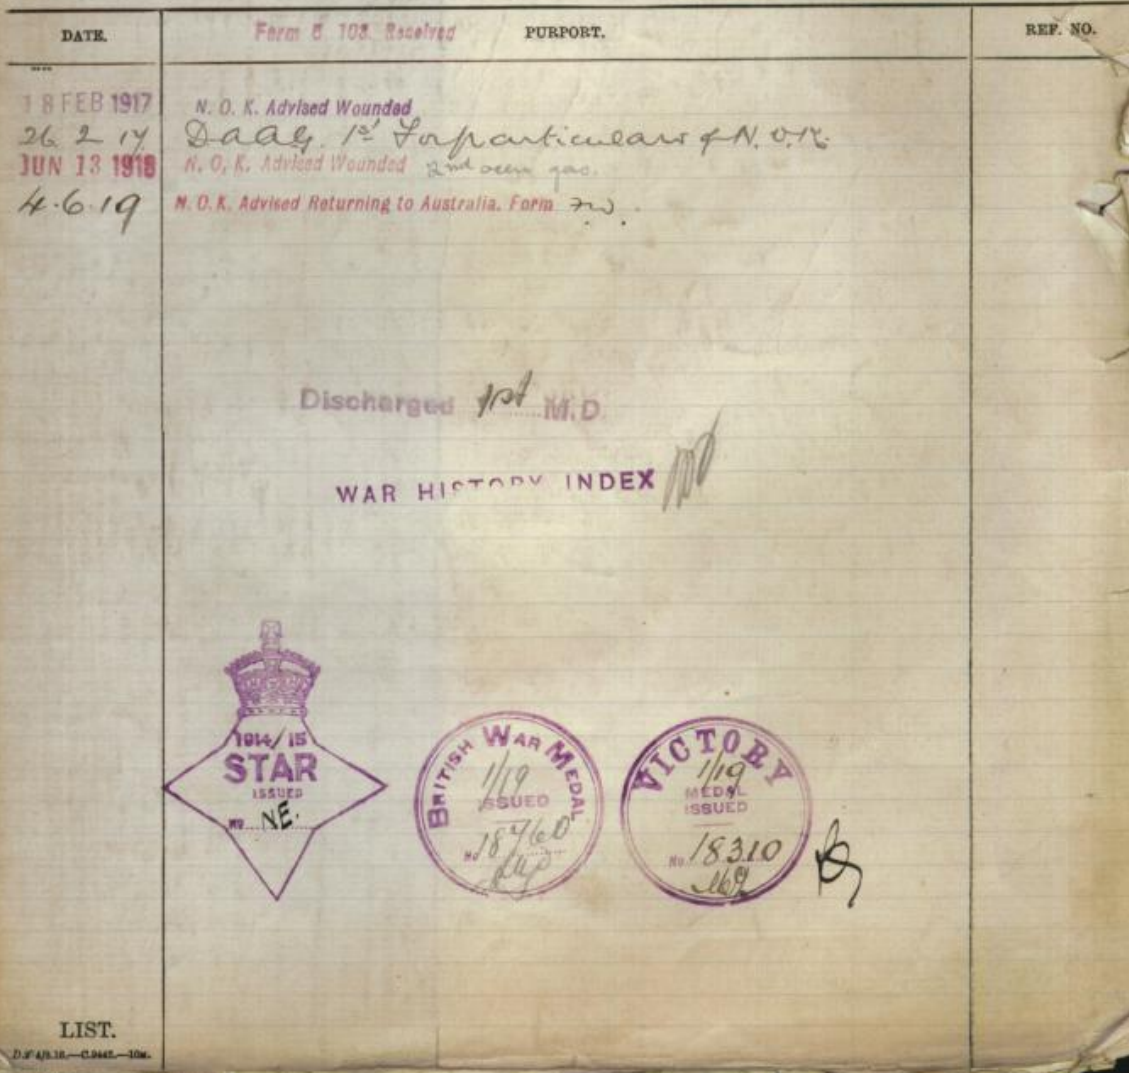 DATE. Form B. 103. Received PURPORT. REF. NO.
18 FEB 1917 N. O. K. Advised Wounded
26 2 17 DAAG. 1st For particulars of N. O. K.
JUN 13 1918 N. O. K. Advised Wounded 2nd occn gas.
4.6.19 N. O. K. Advised Returning to Australia. Form
Discharged 1st M.D.
WAR HISTORY INDEX
1914/15
STAR
ISSUED
No NE.
BRITISH WAR MEDAL
1/19
ISSUED
No 18760
VICTORY
1/19
MEDAL
ISSUED
No. 18310
LIST.